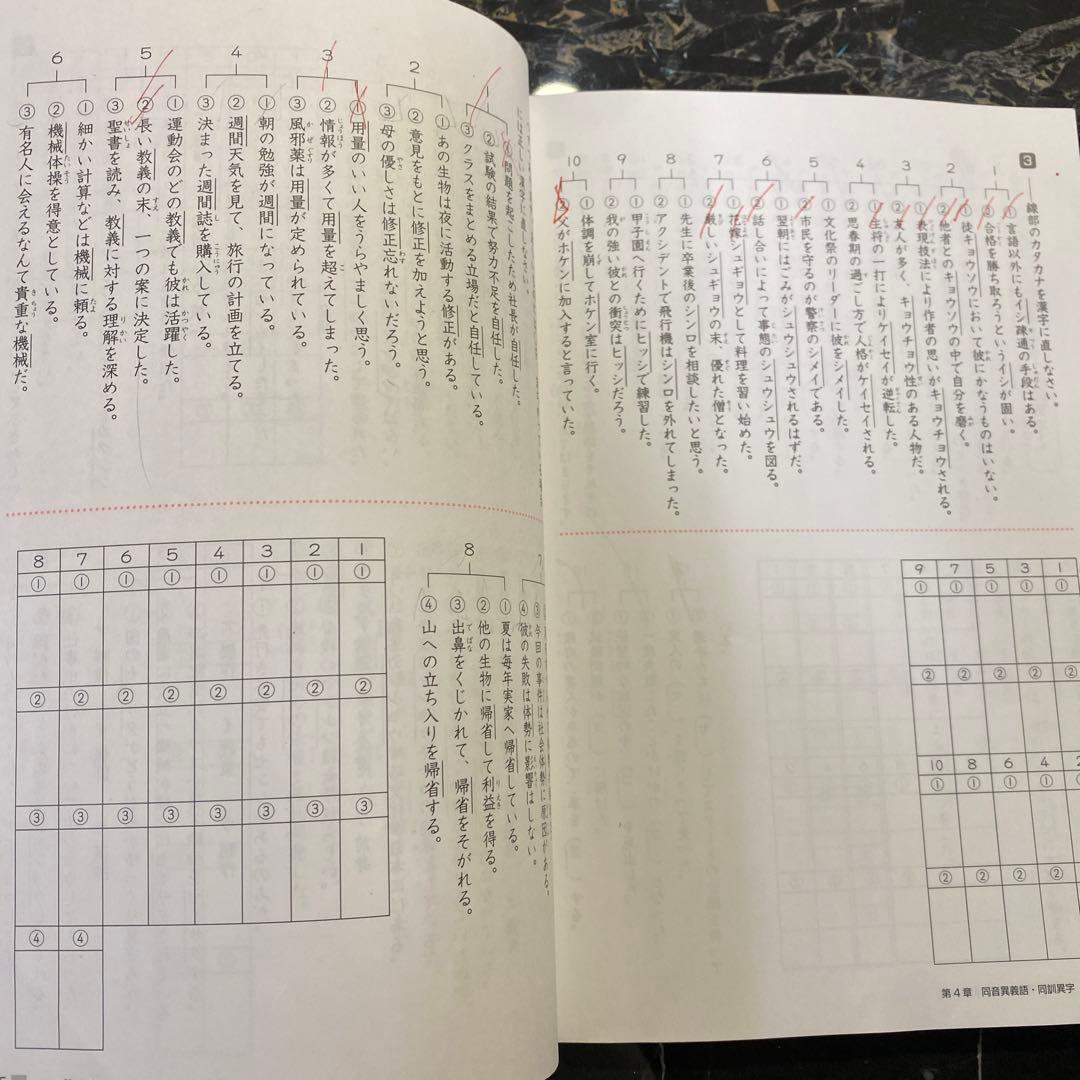 3 ―線部のカタカナを漢字に直しなさい。
1 ①言語以外にもイシ疎通の手段はある。
②合格を勝ち取ろうというイシが固い。
2 ①徒キョウソウにおいて彼にかなうものはいない。
②他者とのキョウソウの中で自分を磨く。
3 ①表現技法により作者の思いがキョウチョウされる。
②友人が多く、キョウチョウ性のある人物だ。
4 ①主将の一打によりケイセイが逆転した。
②思春期の過ごし方で人格がケイセイされる。
5 ①文化祭のリーダーに彼をシメイした。
②市民を守るのが警察のシメイである。
6 ①翌朝にはごみがシュウシュウされるはずだ。
②話し合いによって事態のシュウシュウを図る。
7 ①花嫁シュギョウとして料理を習い始めた。
②厳しいシュギョウの末、優れた僧となった。
8 ①先生に卒業後のシンロを相談したいと思う。
②アクシデントで飛行機はシンロを外れてしまった。
9 ①甲子園へ行くためにヒッシで練習した。
②我の強い彼との衝突はヒッシだろう。
10 ①体調を崩してホケン室に行く。
②父がホケンに加入すると言っていた。
9 7 5 3 1
① ① ① ① ①
② ② ② ② ②
10 8 6 4 2
① ① ① ①
② ② ② ②
第4章 同音異義語・同訓異字
問題を起こしたため社長が自任した。
②試験の結果で努力不足を自任した。
③クラスをまとめる立場だと自任している。
2 ①あの生物は夜に活動する修正がある。
②意見をもとに修正を加えようと思う。
③母の優しさは修正忘れないだろう。
3 ①用量のいい人をうらやましく思う。
②情報が多くて用量を超えてしまった。
③風邪薬は用量が定められている。
4 ①朝の勉強が週間になっている。
②週間天気を見て、旅行の計画を立てる。
③決まった週間誌を購入している。
5 ①運動会のどの教義でも彼は活躍した。
②長い教義の末、一つの案に決定した。
③聖書を読み、教義に対する理解を深める。
6 ①細かい計算などは機械に頼る。
②機械体操を得意としている。
③有名人に会えるなんて貴重な機械だ。
7
③今回の事件は社会体勢に原因がある。
④彼の失敗は体勢に影響はしない。
8 ①夏は毎年実家へ帰省している。
②他の生物に帰省して利益を得る。
③出鼻をくじかれて、帰省をそがれる。
④山への立ち入りを帰省する。
8 7 6 5 4 3 2 1
① ① ① ① ① ① ① ①
② ② ② ② ② ② ② ②
③ ③ ③ ③ ③ ③ ③ ③
④ ④